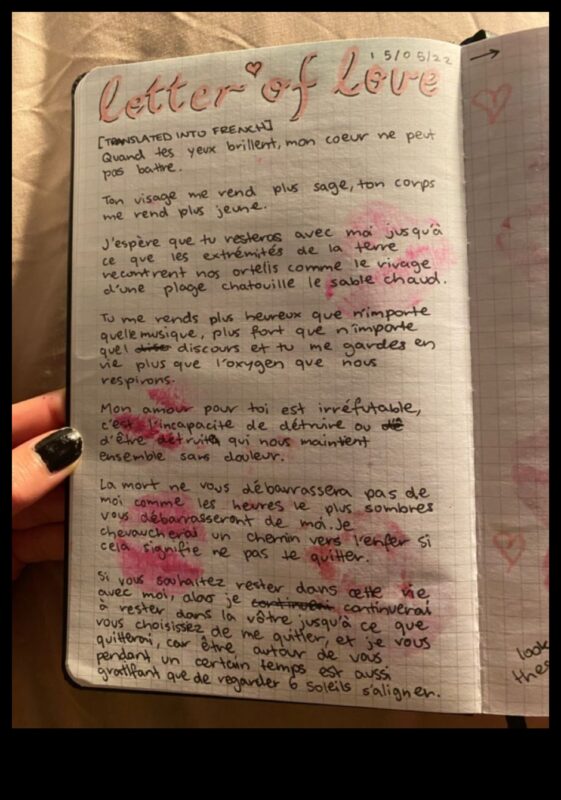 15/05/22
letter of love
[TRANSLATED INTO FRENCH]
Quand tes yeux brillent, mon coeur ne peut
pas battre.
Ton visage me rend plus sage, ton corps
me rend plus jeune.
J'espère que tu resteras avec moi jusqu'à
ce que les extrémités de la terre
recontrent nos orteils comme le rivage
d'une plage chatouille le sable chaud.
Tu me rends plus heureux que n'importe
quelle musique, plus fort que n'importe
quel discours et tu me gardes en
vie plus que l'oxygen que nous
respirons.
Mon amour pour toi est irréfutable,
c'est l'incapacite de détruire ou
d'être détruit qui nous maintent
ensemble sans douleur.
La mort ne vous débarrassera pas de
moi comme les heures le plus sombres
vous débarrasseront de moi. Je
chevaucherai un chemin vers l'enfer si
cela signifie ne pas te quitter.
Si vous souhaitez rester dans cette vie
avec moi, alors je continuerai
à rester dans la vôtre jusqu'à ce que
vous choisissez de me quitter, et je vous
quitterai, car être autour de vous
pendant un certain temps est aussi
gratifant que de regarder 6 soleils s'aligner.
look
these